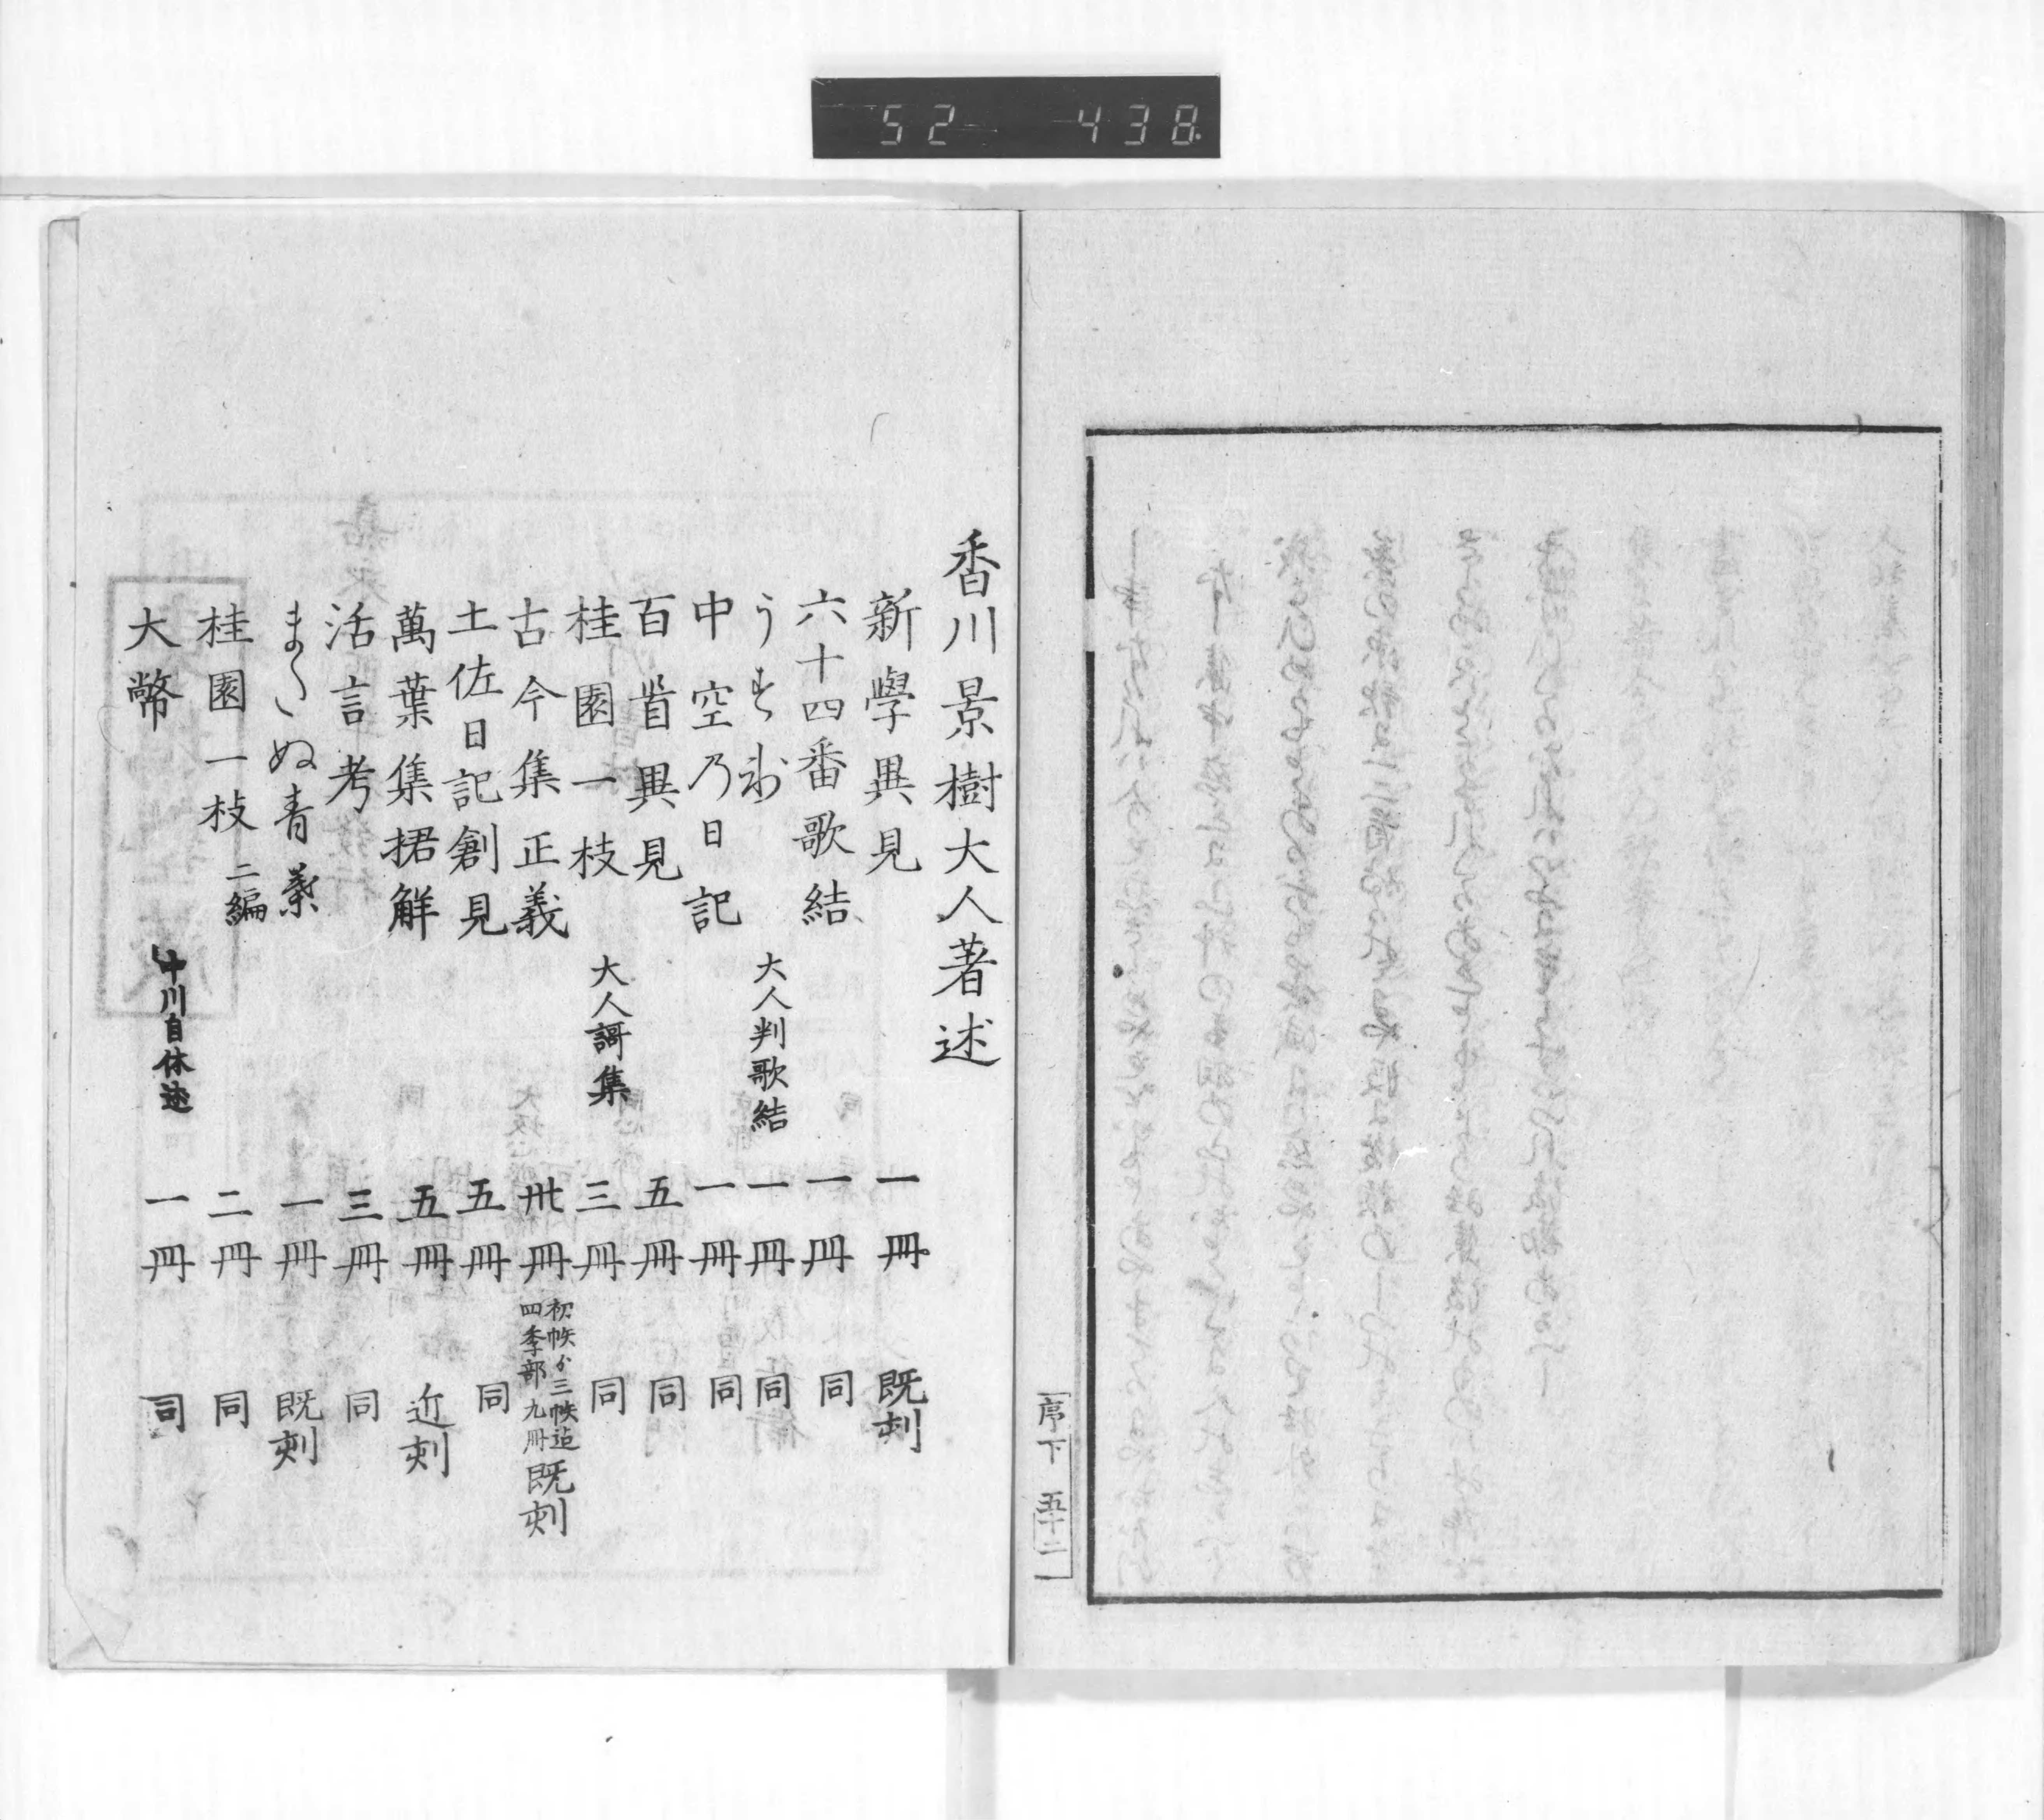 52 438
序下 五十二
香川景樹大人著述
新學異見 一冊 既刻
六十四番歌結 一冊 同
大人判歌結 一冊 同
中空乃日記 一冊 同
百首異見 五冊 同
桂園一枝 大人謌集 三冊 同
古今集正義 卅冊 初帙ゟ三帙迠四季部九冊既刻
土佐日記創見 五冊 同
萬葉集捃解 五冊 近刻
活言考 三冊 同
まくぬ青葉 一冊 既刻
桂園一枝 二編 二冊 同
大幣 中川自休述 一冊 同